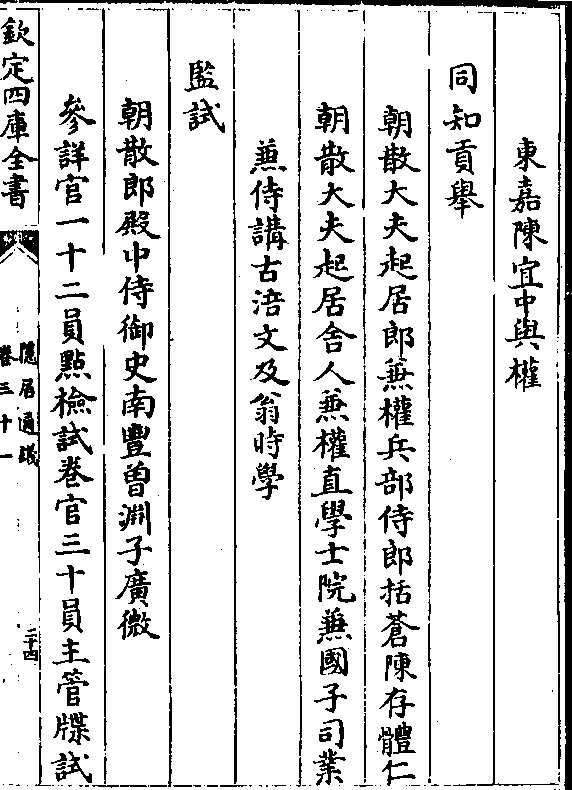 東嘉陳宜中與權
同知貢舉
朝散大夫起居郎兼權兵部侍郎括蒼陳存體仁
朝散大夫起居舍人兼權直學士院兼國子司業
兼侍講古涪文及翁時學
監試
朝散郎殿中侍御史南豐曾淵子廣微
參詳官一十二員點檢試卷官三十員主管牒試
欽定四庫全書
隱居通議
卷三十一
二十四